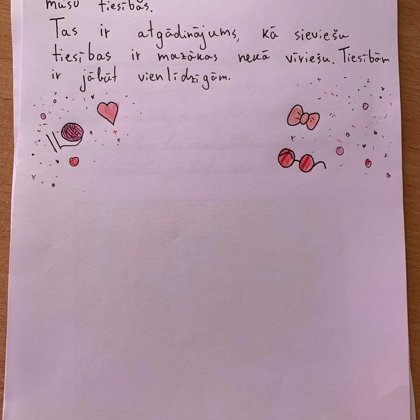 mūsu tiesībās.
Tas ir atgādinājums, kā sieviešu
tiesības ir mazākas nekā vīriešu. Tiesībām
ir jābūt vienlīdzīgām.